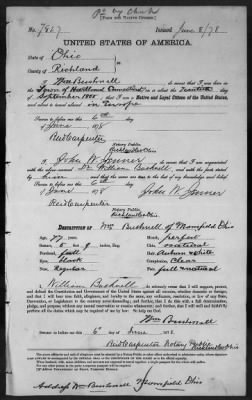 Pd by Check
[FORM FOR NATIVE CITIZEN.]
No. 7867 Issued June 8/78
UNITED STATES OF AMERICA.
State of Ohio
County of Richland
I, Wm Bushnell do swear that I was born in the
Town of Hartland Connecticut on the
September 1800; that I am a Native and Loyal Citizen of the United States,
and about to travel abroad in Europe
Sworn to before me this 6th day
of June 1878 Wm Bushnell
Reid Carpenter
Notary Public
Richland Co Ohio
I, John W Jenner do swear that I am acquainted
with the above named Dr William Bushnell, and with the facts
Sworn to before me this 6th day
of June 1878 John W Jenner
Reid Carpenter
Notary Public
Richland Co Ohio
DESCRIPTION OF Wm Bushnell of Mansfield Ohio
Age, 77 years.
Stature, 5 feet 9 inches, Eng.
Forehead, full
Eyes, black
Nose, Regular
Mouth, perfect
Chin, natural
Hair, Auburn & White
Complexion, Clear
Face, full & natural
I, William Bushnell do solemnly swear that I will support, protect,
and defend the Constitution and Government of the United States against all enemies, whether domestic or foreign;
and that I will bear true faith, allegiance, and loyalty to the same, any ordinance, resolution, or law of any State,
Convention, or Legislature to the contrary notwithstanding; and further, that I do this with a full determination,
pledge, and purpose, without any mental reservation or evasion whatsoever; and further, that I will well and faithfully
perform all the duties which may be required of me by law: So help me God.
Wm Bushnell
Sworn to before me this 6 day of June 1878
Reid Carpenter Notary Public
Richland Co Ohio
Address Wm Bushnell Mansfield Ohio